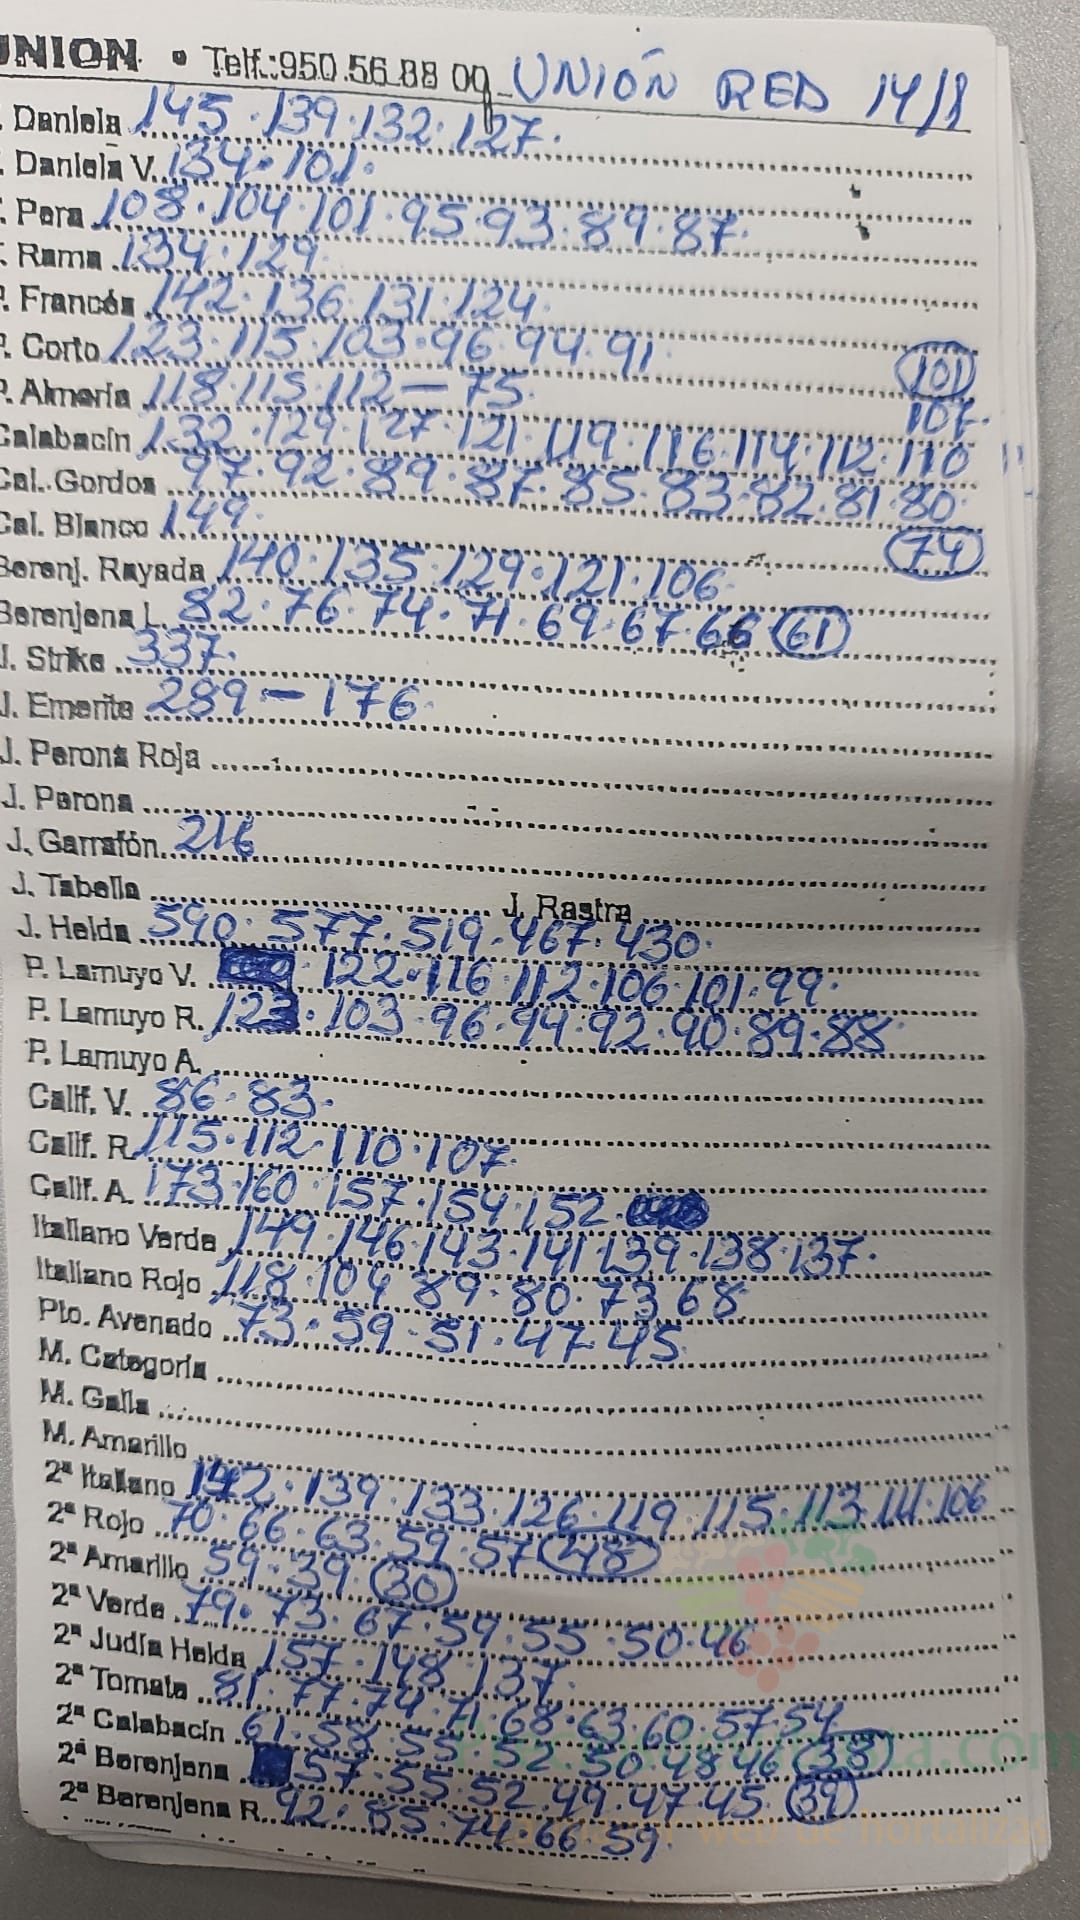 UNION • Telf.:950.56.88 09 UNIÓN RED 14/1
T. Daniela 145·139·132·127·
T. Daniela V. 134·101·
T. Pera 108·104·101·95·93·89·87·
T. Rama 134·129·
P. Francés 142·136·131·124·
P. Corto 123·115·103·96·94·91·
P. Almería 118·115·112—75·
Calabacín 132·129·127·121·119·116·114·112·110·107· (101)
Cal. Gordos 97·92·89·87·85·83·82·81·80· (74)
Cal. Blanco 149·
Berenj. Rayada 140·135·129·121·106·
Berenjena L. 82·76·74·71·69·67·66 (61)
J. Strike 337·
J. Emerite 289—176·
J. Perona Roja
J. Perona
J. Garrafón 216
J. Tabella J. Rastra
J. Helda 590·577·519·467·430·
P. Lamuyo V. 122·116·112·106·101·99·
P. Lamuyo R. 123·103·96·94·92·90·89·88
P. Lamuyo A.
Calif. V. 86·83·
Calif. R. 115·112·110·107·
Calif. A. 173·160·157·154·152
Italiano Verde 149·146·143·141·139·138·137·
Italiano Rojo 118·104·89·80·73·68
Pto. Avenado 73·59·51·47·45
M. Categoría
M. Galia
M. Amarillo
2ª Italiano 142·139·133·126·119·115·113·111·106
2ª Rojo 70·66·63·59·57 (48)
2ª Amarillo 59·39· (30)
2ª Verde 79·73·67·59·55·50·46
2ª Judía Helda 157·148·137·
2ª Tomate 81·77·74·71·68·63·60·57·54
2ª Calabacín 61·58·55·52·50·48·46 (38)
2ª Berenjena 57·55·52·49·47·45· (39)
2ª Berenjena R. 92·85·74·66·59·